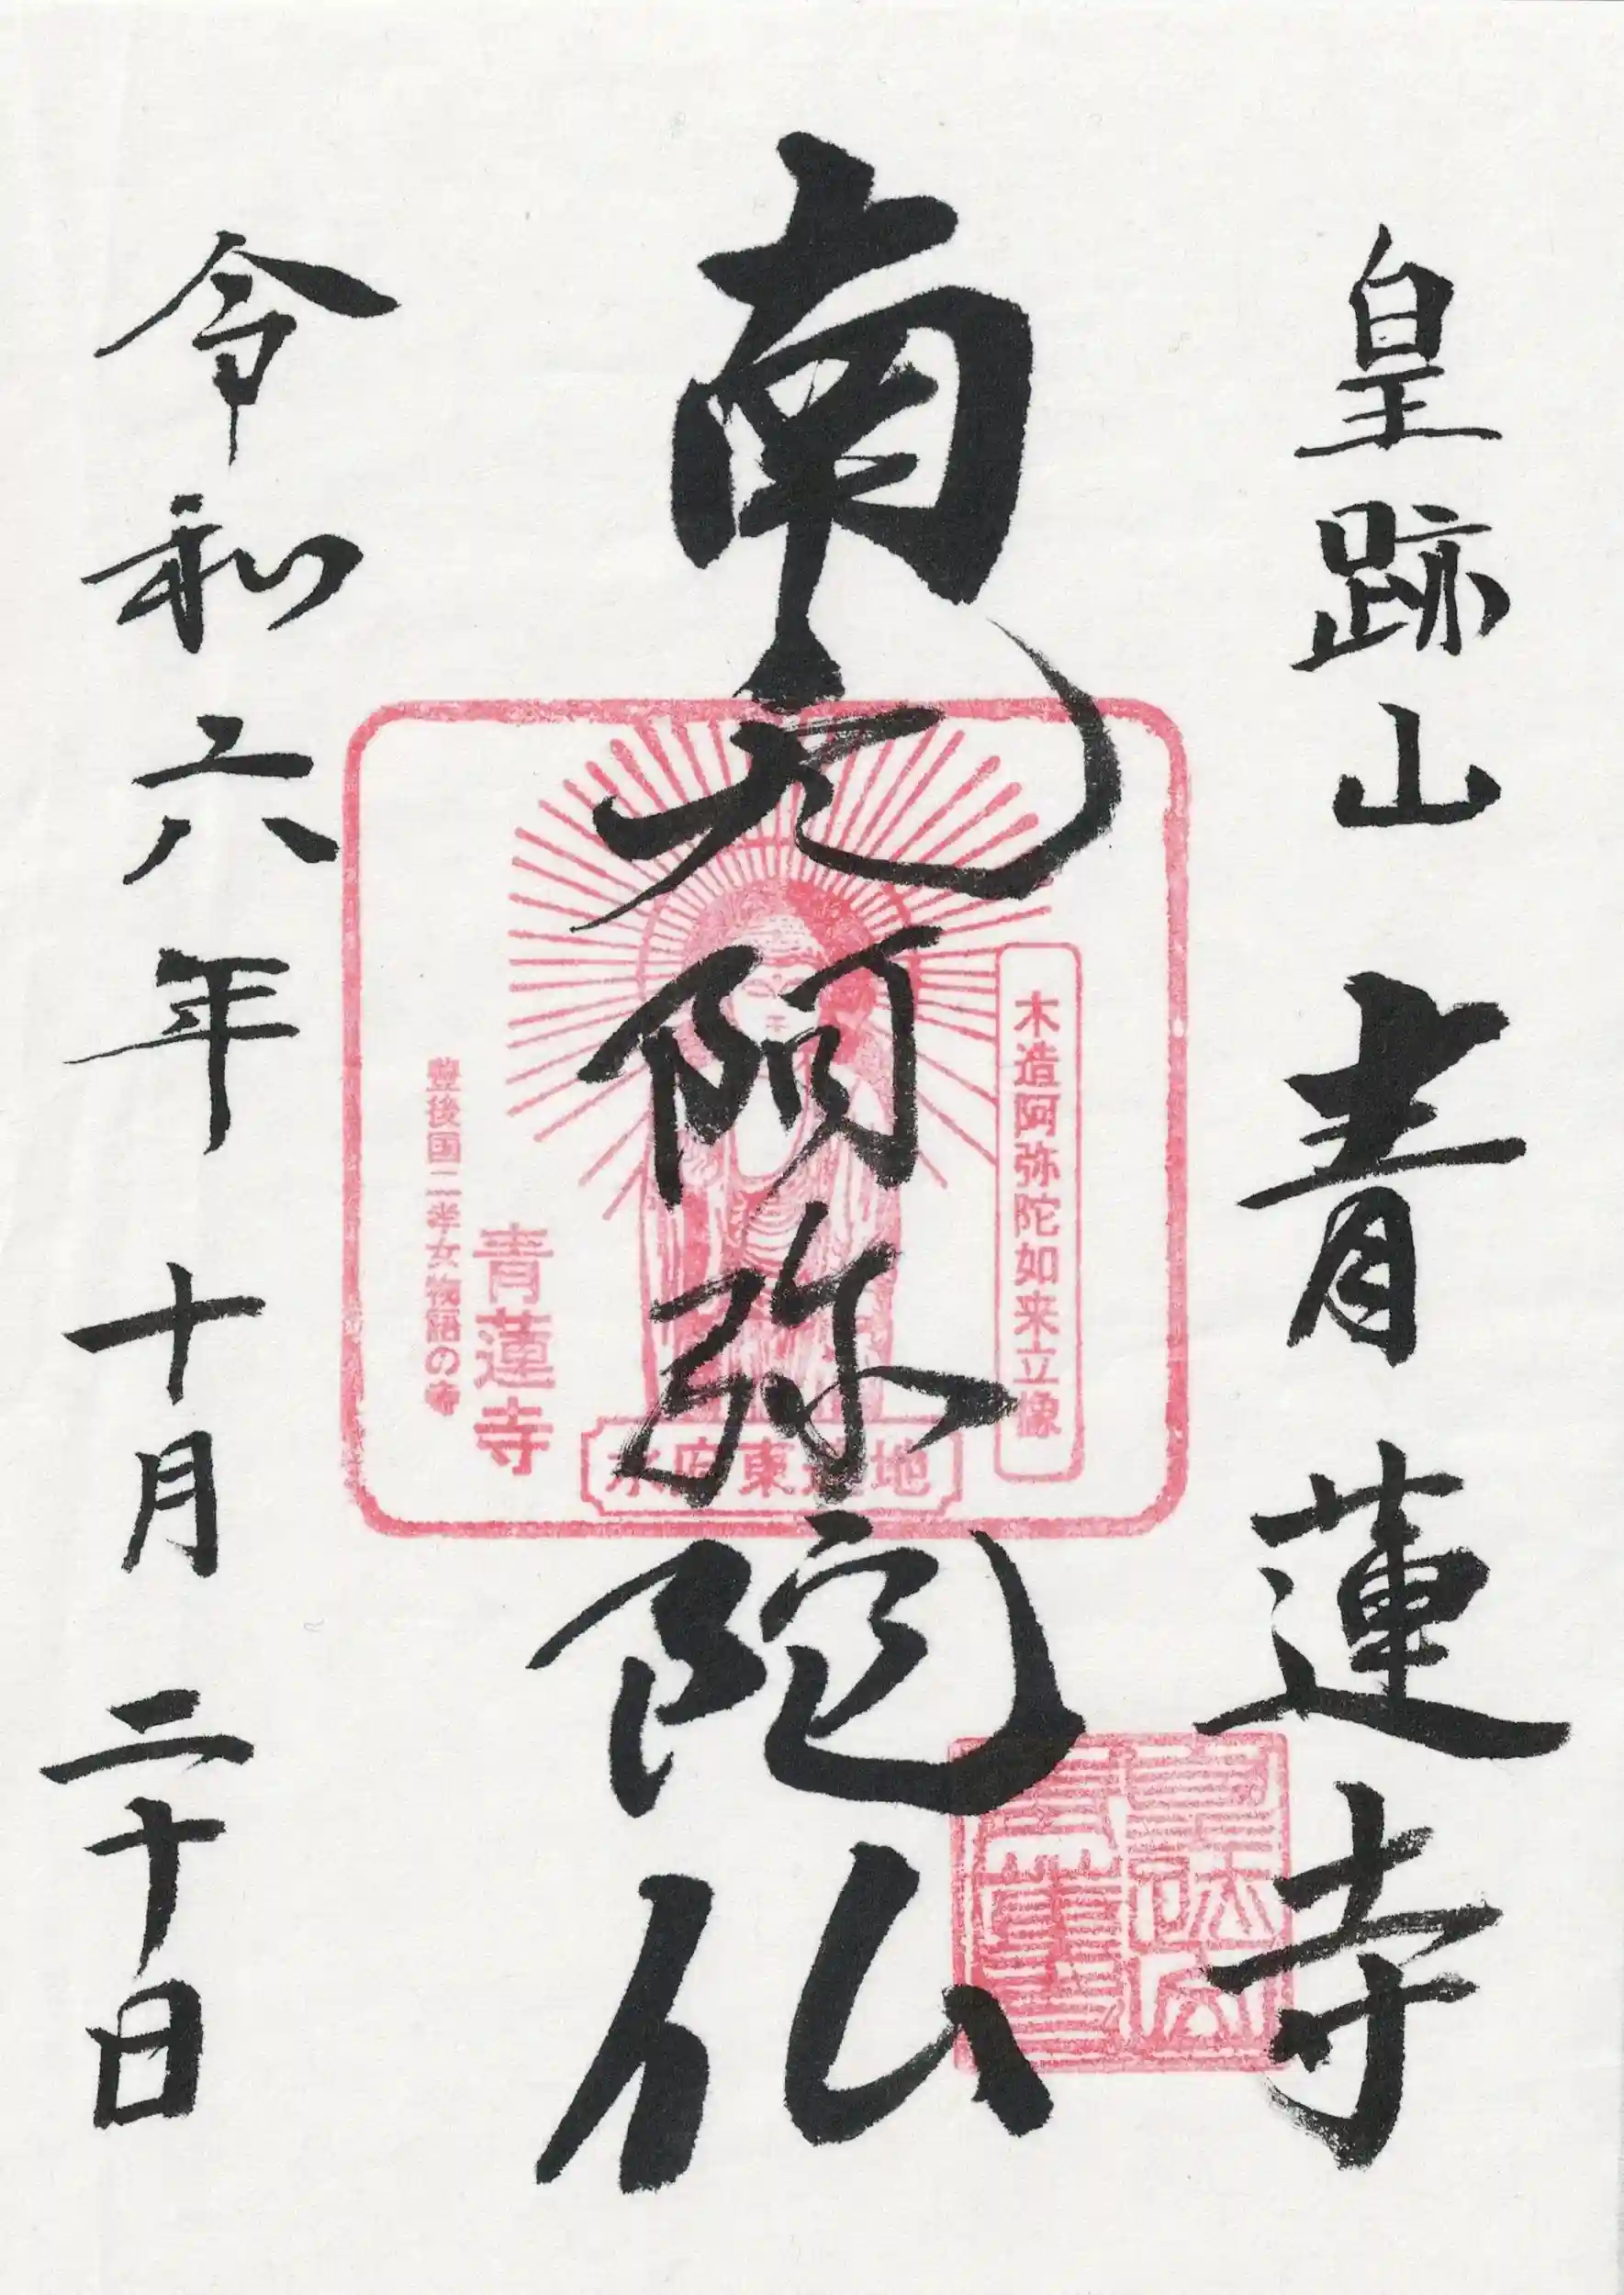 皇跡山 青蓮寺
南无阿弥陀仏
木造阿弥陀如来立像
水府東連地
青蓮寺
豊後国二孝女物語の寺
令和六年 十月 二十日